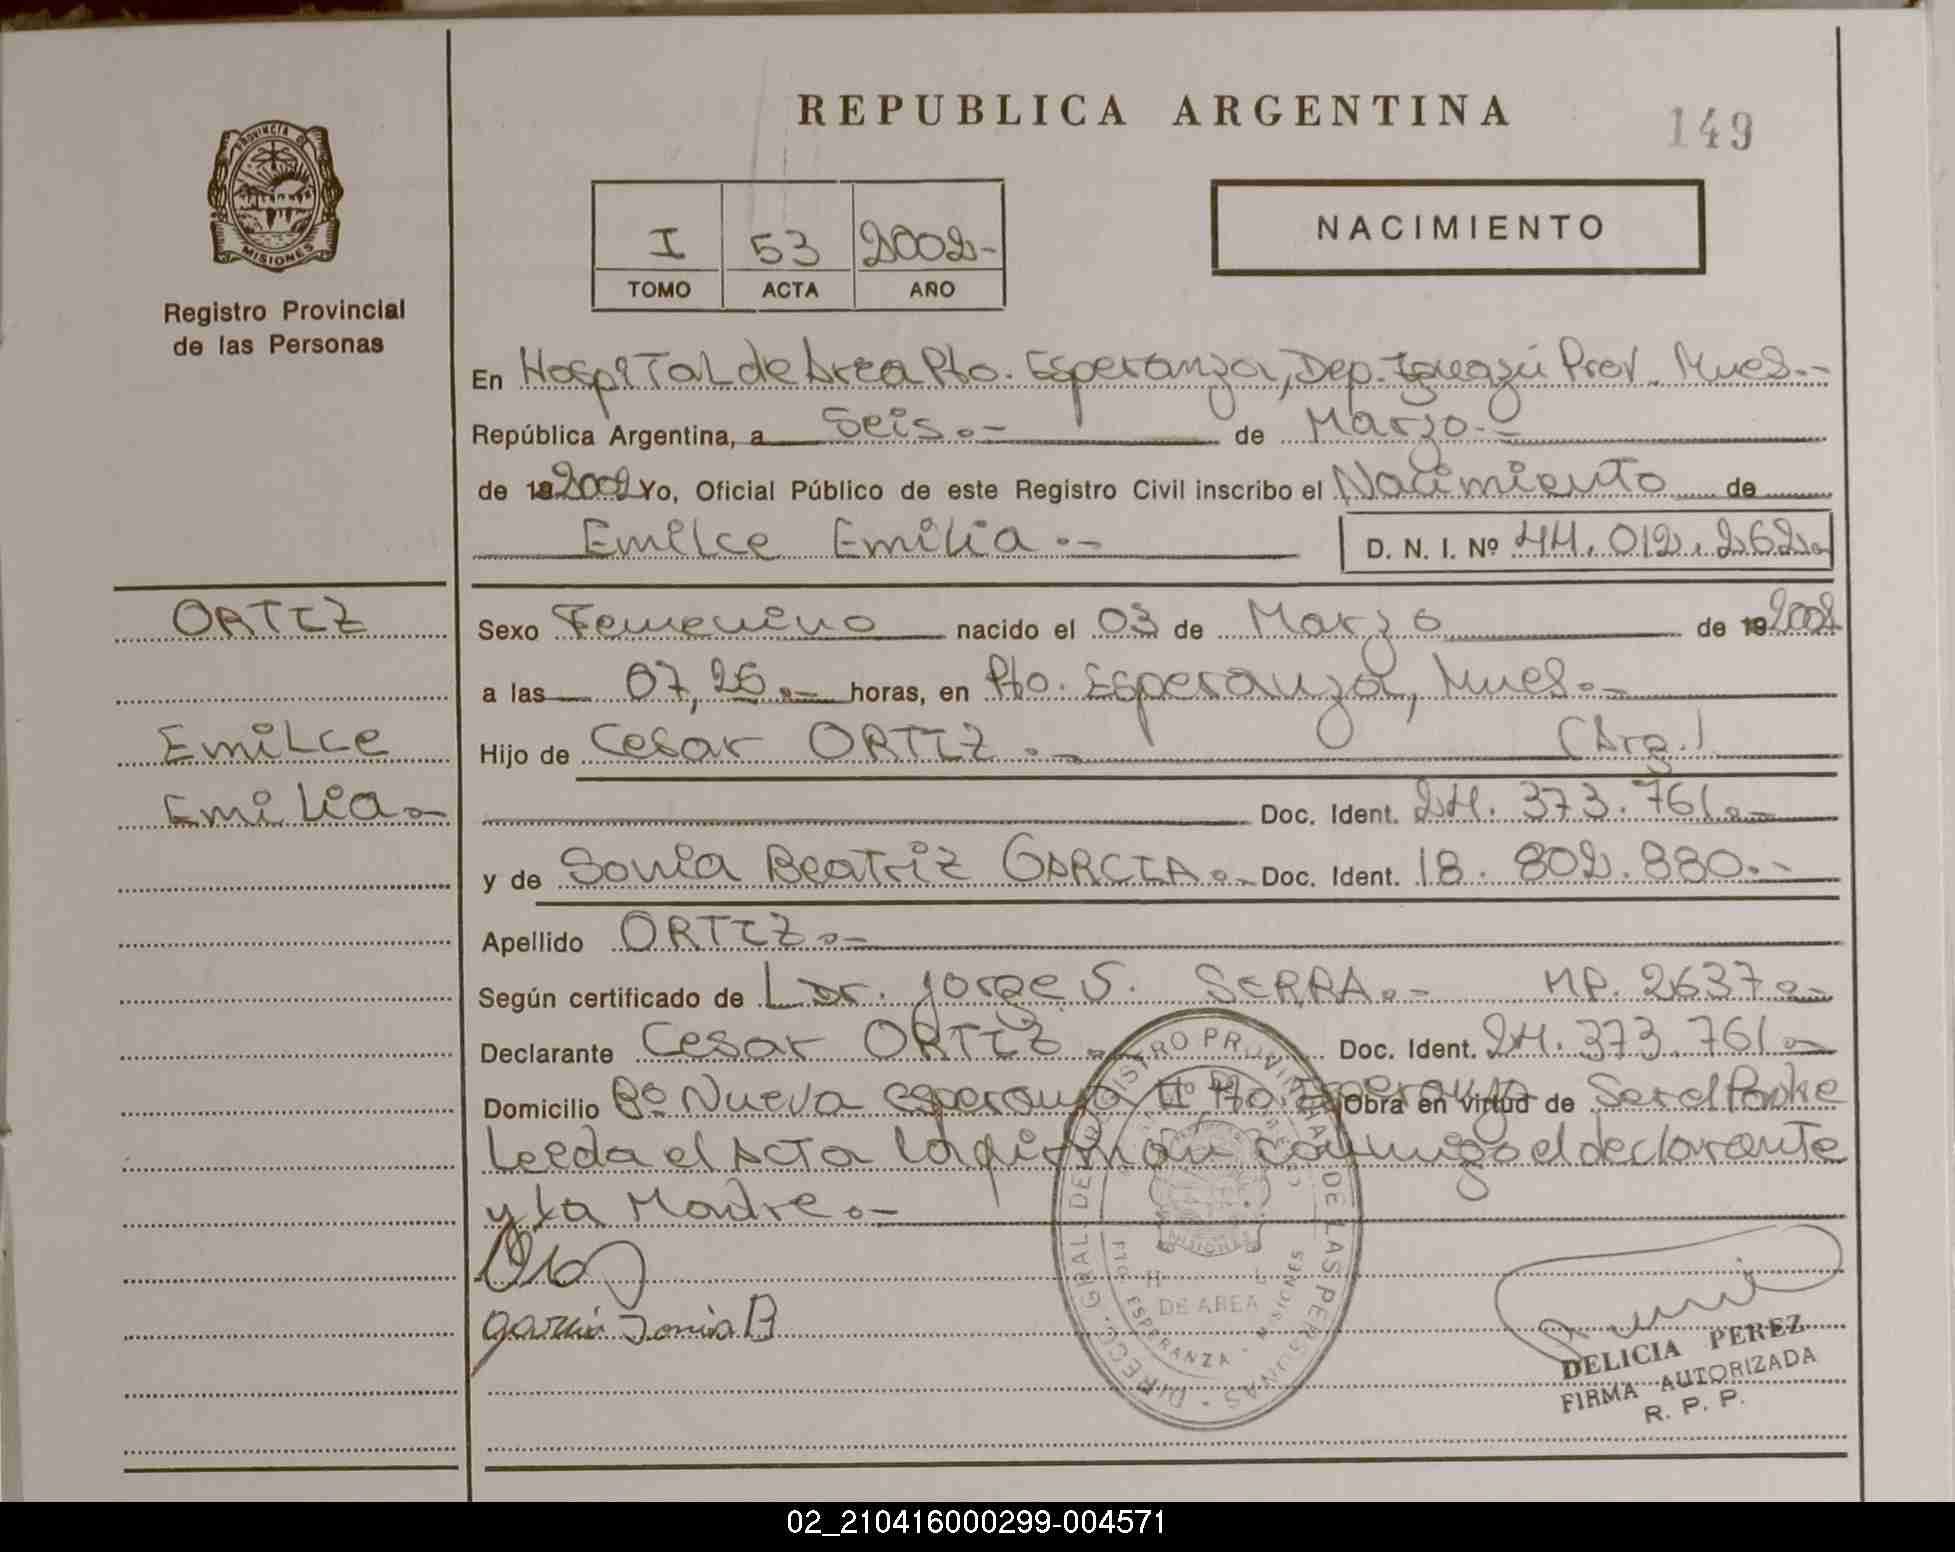 REPUBLICA ARGENTINA
149
PROVINCIA DE
MISIONES
Registro Provincial
de las Personas
I 53 2002-
TOMO ACTA AÑO
NACIMIENTO
En Hospital de Area Pto. Esperanza, Dep. Iguazú Prov. Mnes.-
República Argentina, a Seis.- de Marzo.-
de 19 2002 Yo, Oficial Público de este Registro Civil inscribo el Nacimiento de
Emilce Emilia.-
D. N. I. Nº 44.012.262.-
ORTIZ
Emilce
Emilia.-
Sexo Femenino nacido el 03 de Marzo de 19 2002
a las 07,25.- horas, en Pto. Esperanza, Mnes.-
Hijo de Cesar ORTIZ.- (Arg.)
Doc. Ident. 24.373.761.-
y de Sonia Beatriz GARCIA.- Doc. Ident. 18.802.880.-
Apellido ORTIZ.-
Según certificado de Dr. Jorge S. SERRA.- MP. 2637.-
Declarante Cesar ORTIZ.- Doc. Ident. 24.373.761.-
Domicilio Bº Nueva esperanza Pto. Esperanza Obra en virtud de Ser el Padre
Leida el Acta la firman conmigo el declarante
y la Madre.-
Garcia Sonia B
DIRECC. GRAL. DE REGISTRO PROVINCIAL DE LAS PERSONAS
MISIONES
DE AREA
PTO. ESPERANZA - MISIONES
DELICIA PEREZ
FIRMA AUTORIZADA
R. P. P.
02_210416000299-004571